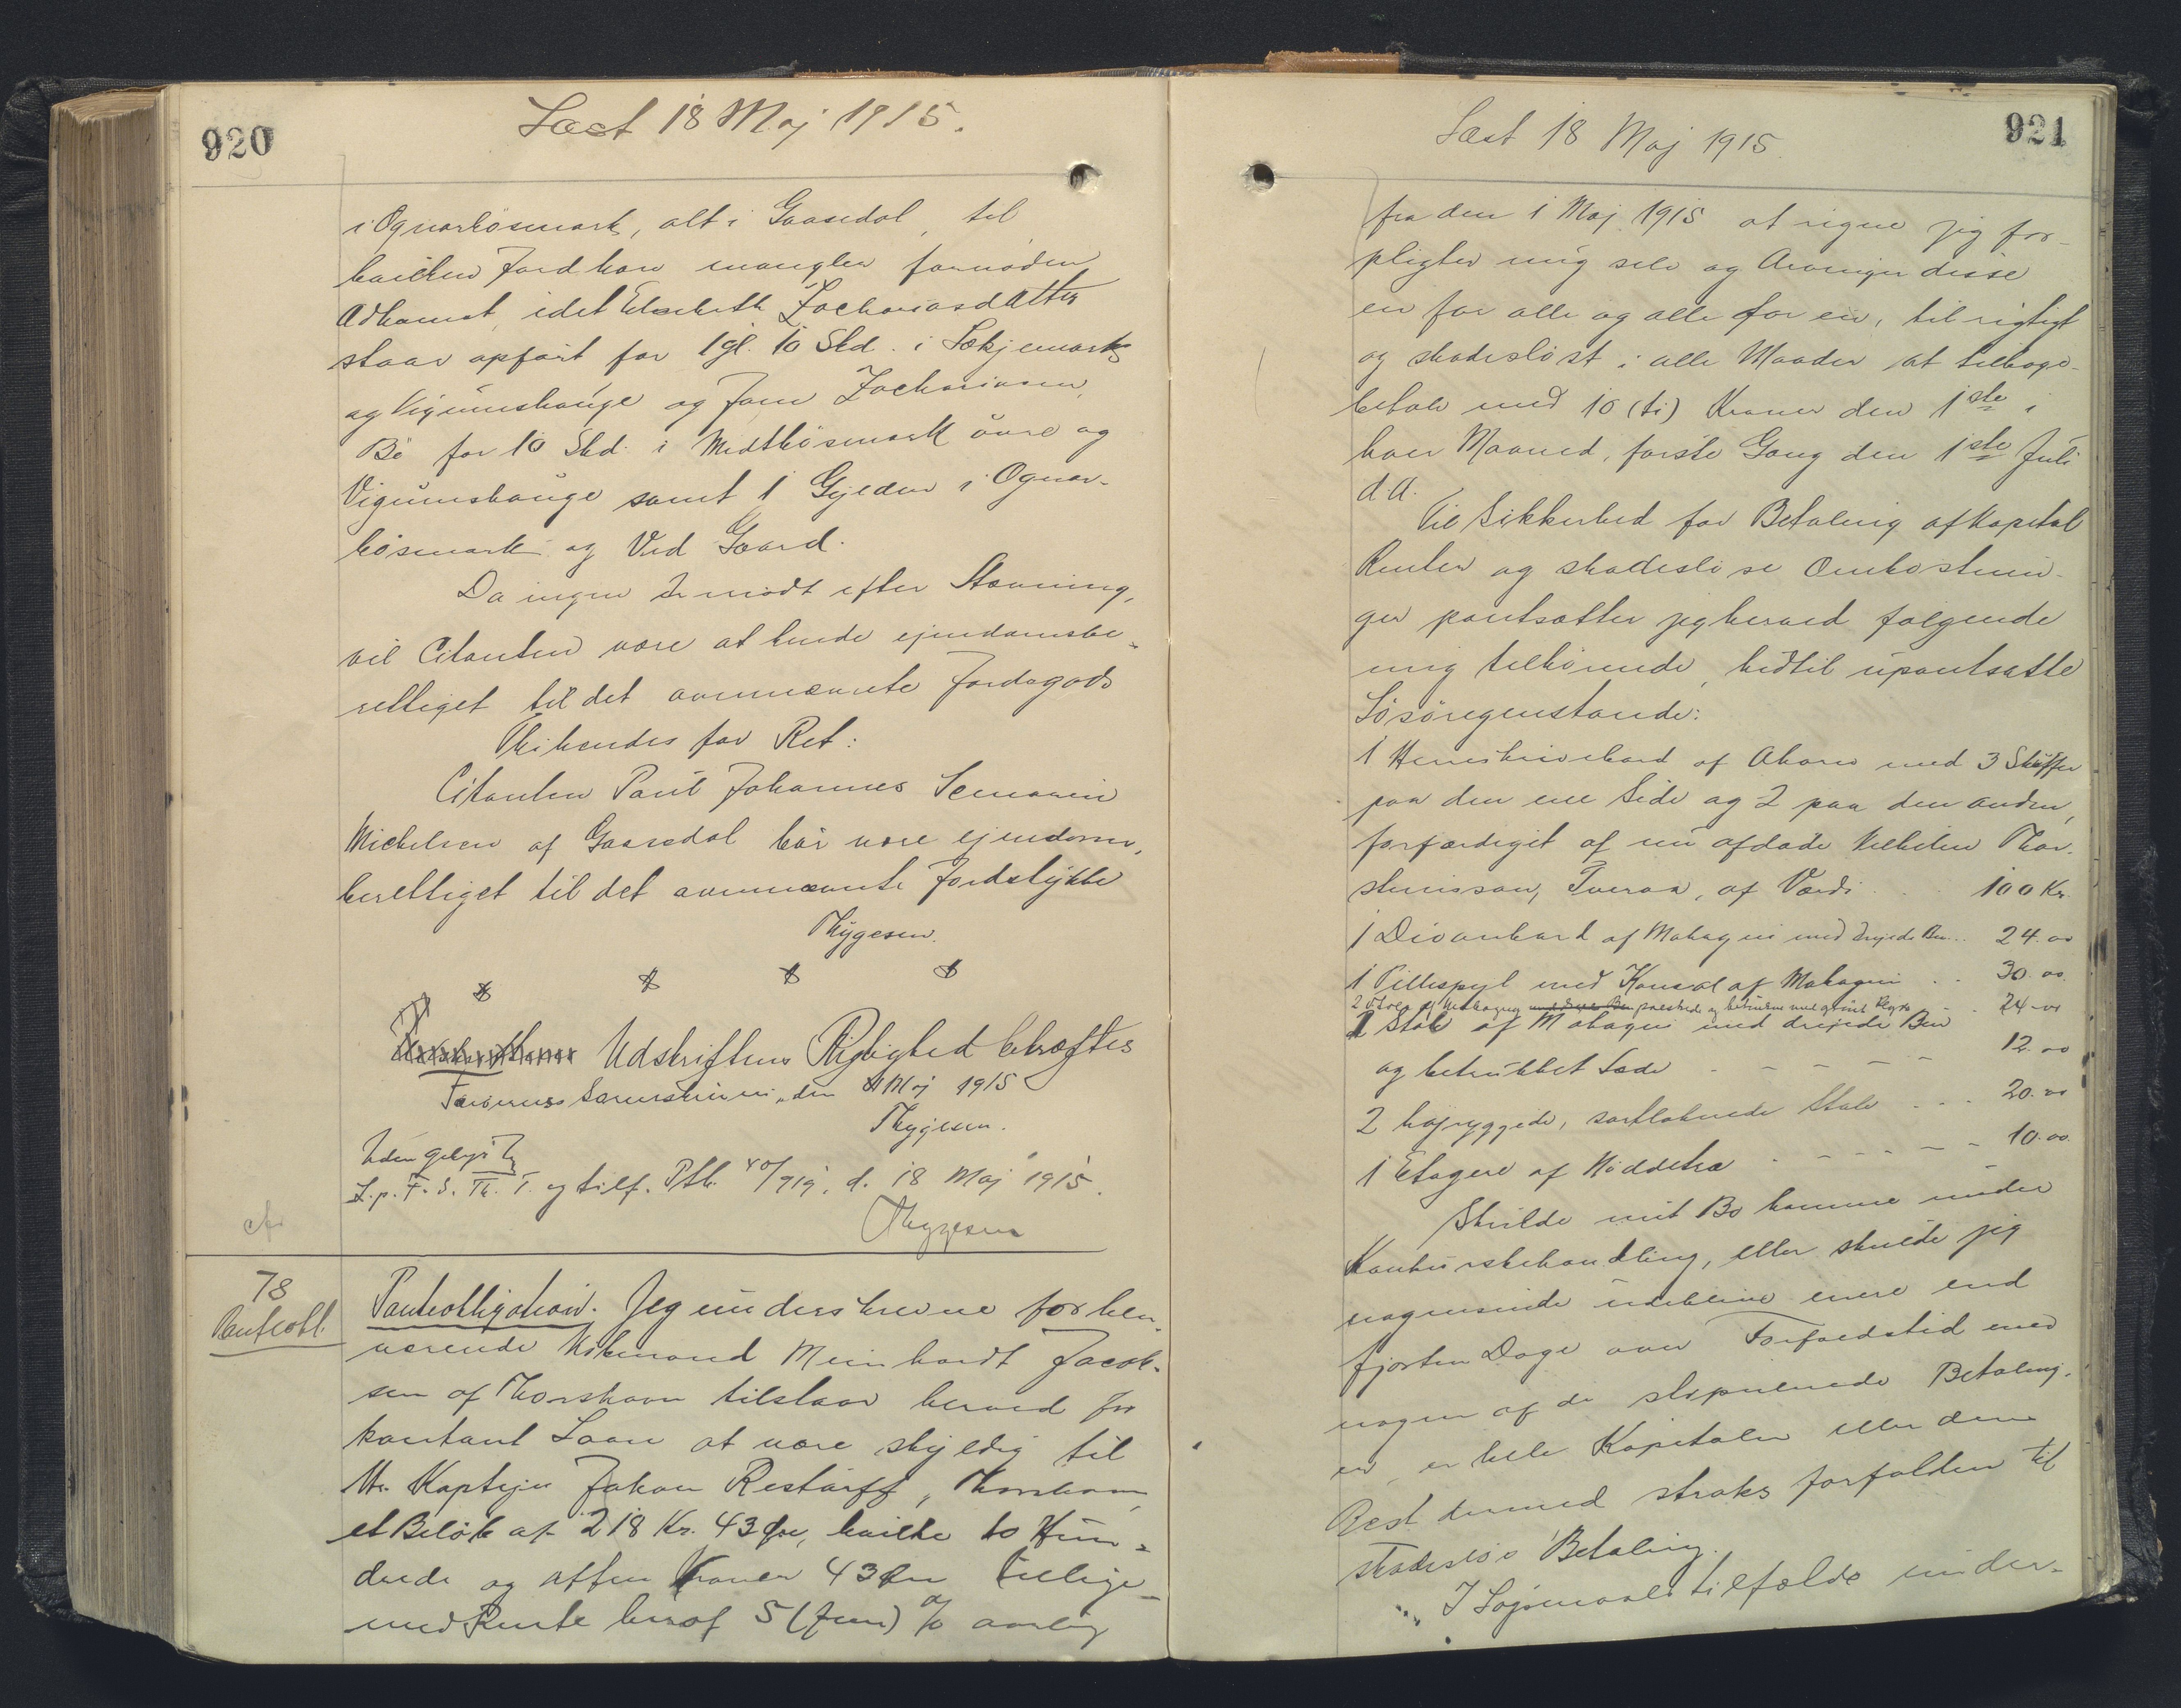 920
Læst 18 Maj 1915.
i Ognarbösmark, alt i Gaasedal, til
hvilken Jord han mangler fornøden
Adkomst, idet Elsebeth Zachariasdatter
staar opført for 1 gl. 10 Skd. i
og Vigumshauge og Joen Zachariasen,
Bö for 10 Skd. i Midtbösmark övre og
Vigumshauge samt 1 Gylden i Ognar-
bösmark og Ved Gaard.
Da ingen er mödt efter Stævning,
vil Citanten være at kende ejendomsbe-
rettiget til det ovennævnte Jordegods
Thi kendes for Ret:
Citanten Paul Johannes Samson
Michelsen af Gaasedal bör være ejendoms-
berettiget til det ovennævnte Jordstykke
Thygesen.
Udskriftens Rigtighed bekræftes
Færøernes Sorenskriveri, den 4 Maj 1915
Thygesen.
Uden Gebyr Th
L.p. F. S. Th. T. og tilf. Ptb. 40/919, d. 18 Maj 1915.
Thygesen
cfr
78
Panteobl.
Panteobligation. Jeg underskrevne forhen-
værende Købmand Meinhardt Jacob-
sen af Thorshavn tilstaar herved for
kontant Laan at være skyldig til
Hr. Kaptejn Jakon Restorff, Thorshavn,
et Beløb af 218 Kr. 43 Øre, hvilke to Hun-
drede og atten Kroner 43 Øre tillige-
med Rente heraf 5 (fem) % aarlig
921
Læst 18 Maj 1915.
fra den 1 Maj 1915 at regne jeg for-
pligter mig selv og Arvinger disse
en for alle og alle for en, til rigtigt
og skadesløst i alle Maader at tilbage-
betale med 10 (ti) Kroner den 1ste i
hver Maaned, første Gang den 1ste Juli
d.A.
Til Sikkerhed for Betaling af Kapital
Renter og skadesløse Omkostnin-
ger pantsætter jeg herved følgende
mig tilhørende, hidtil upantsatte
Løsøregenstande:
1 Herreskrivebord af Ahorn med 3 Skuffer
paa den ene Side og 2 paa den anden,
forfærdiget af nu afdøde Vilhelm Thor-
steinsson, Tveraa, af Værdi . . 100 Kr.
1 Divanbord af Mahagni med drejede Ben .. 24.00
1 Pillespejl med Konsol af Mahagni . . 30.00
2 Stole af Mahogny med drejede Ben polstrede og betrukne med grønt Plyds . . 24-00
1 Stol af Mahagni med drejede Ben
og betrukket Sæde . - - - - 12.00
2 højryggede, sortlakerede Stole . . . 20.00
1 Etagere af Nøddetræ . - - - - 10.00.
Skulde mit Bo komme under
Konkursbehandling, eller skulde jeg
nogensinde udeblive mere end
fjorten Dage over Forfaldstid med
nogen af de stipulerede Betalin-
er, er hele Kapitalen eller dens
Rest dermed straks forfalden til
skadesløs Betaling.
I Søgsmaalstilfælde under-